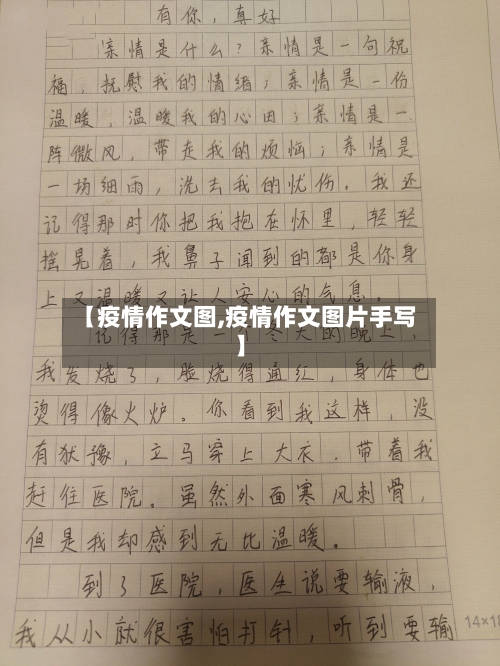 有你，真好
亲情是什么？亲情是一句祝
福，抚慰我的情绪；亲情是一份
温暖，温暖我的心田；亲情是一
阵微风，带走我的烦恼；亲情是
一场细雨，洗去我的忧伤。我还
记得那时你把我抱在怀里，轻轻
摇晃着，我鼻子闻到的都是你身
上又温暖又让人安心的气息。
【疫情作文图,疫情作文图片手写
】
记得那是一个冬天的晚上，
我发烧了，脸烧得通红，身体也
烫得像火炉。你看到我这样，没
有犹豫，立马穿上大衣，带着我
赶往医院。虽然外面寒风刺骨，
但是我却感到无比温暖。
到了医院，医生说要输液，
我从小就很害怕打针，听到要输
14×18